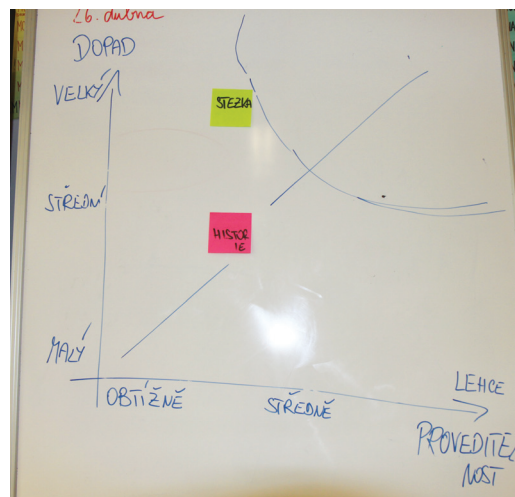 26. dubna
DOPAD
VELKÝ
STEZKA
STŘEDNÍ
HISTOR
IE
MALÝ
OBTÍŽNĚ
STŘEDNĚ
LEHCE
PROVEDITEL
NOST